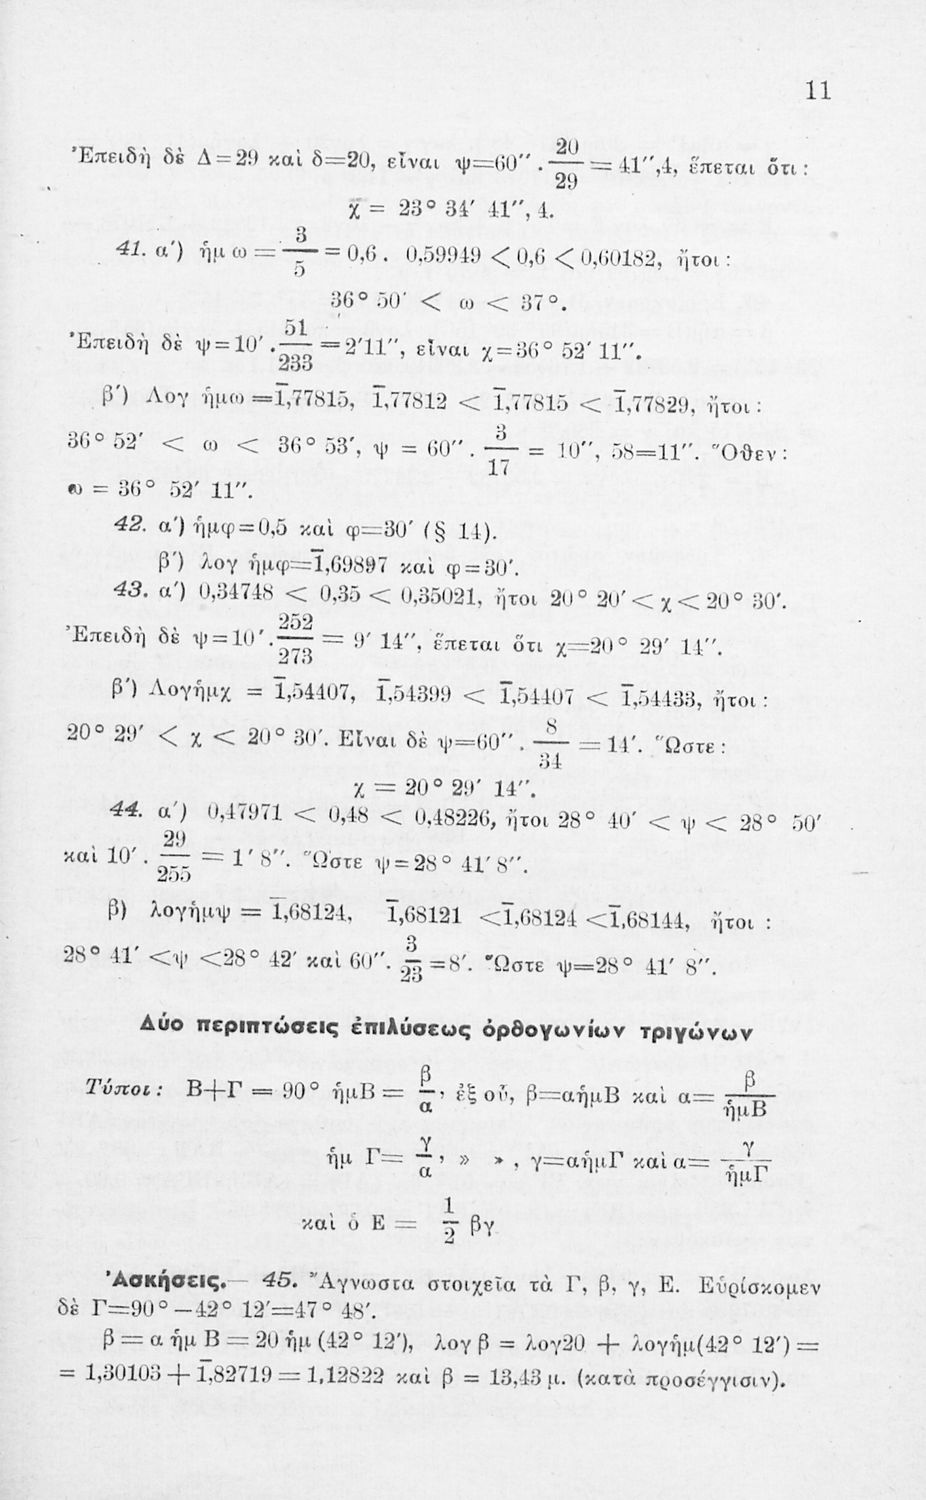 11
Ἐπειδὴ δὲ Δ=29 καὶ δ=20, εἶναι ψ=60″ . 20/29 = 41″,4, ἕπεται ὅτι :
χ = 23° 34′ 41″, 4.
41. α′) ἡμ ω = 3/5 = 0,6 . 0,59949 < 0,6 < 0,60182, ἤτοι :
36° 50′ < ω < 37°.
Ἐπειδὴ δὲ ψ=10′ . 51/233 = 2′11″, εἶναι χ=36° 52′ 11″.
β′) Λογ ἡμω = 1̄,77815, 1̄,77812 < 1̄,77815 < 1̄,77829, ἤτοι :
36° 52′ < ω < 36° 53′, ψ = 60″ . 3/17 = 10″, 58=11″. Ὅθεν :
ω = 36° 52′ 11″.
42. α′) ἡμφ=0,5 καὶ φ=30′ (§ 14).
β′) λογ ἡμφ=1̄,69897 καὶ φ=30′.
43. α′) 0,34748 < 0,35 < 0,35021, ἤτοι 20° 20′ < χ < 20° 30′.
Ἐπειδὴ δὲ ψ=10′ . 252/273 = 9′ 14″, ἕπεται ὅτι χ=20° 29′ 14″.
β′) Λογἡμχ = 1̄,54407, 1̄,54399 < 1̄,54407 < 1̄,54433, ἤτοι :
20° 29′ < χ < 20° 30′. Εἶναι δὲ ψ=60″ . 8/34 = 14′. Ὥστε :
χ = 20° 29′ 14″.
44. α′) 0,47971 < 0,48 < 0,48226, ἤτοι 28° 40′ < ψ < 28° 50′
καὶ 10′ . 29/255 = 1′ 8″. Ὥστε ψ=28° 41′ 8″.
β) λογἡμψ = 1̄,68124, 1̄,68121 < 1̄,68124 < 1̄,68144, ἤτοι :
28° 41′ < ψ < 28° 42′ καὶ 60″. 3/23 = 8′. Ὥστε ψ=28° 41′ 8″.
Δύο περιπτώσεις ἐπιλύσεως ὀρθογωνίων τριγώνων
Τύποι : Β+Γ = 90° ἡμΒ = β/α, ἐξ οὗ, β=αἡμΒ καὶ α= β/ἡμΒ
ἡμ Γ= γ/α, » » , γ=αἡμΓ καὶ α= γ/ἡμΓ
καὶ ὁ Ε = 1/2 βγ
Ἀσκήσεις.— 45. Ἄγνωστα στοιχεῖα τὰ Γ, β, γ, Ε. Εὑρίσκομεν
δὲ Γ=90°—42° 12′=47° 48′.
β = α ἡμ Β = 20 ἡμ (42° 12′), λογ β = λογ20 + λογἡμ(42° 12′) =
= 1,30103 + 1̄,82719 = 1,12822 καὶ β = 13,43 μ. (κατὰ προσέγγισιν).